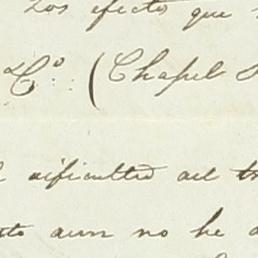 Los efectos que
& Cº. (Chapel
dificultad del
aun no he